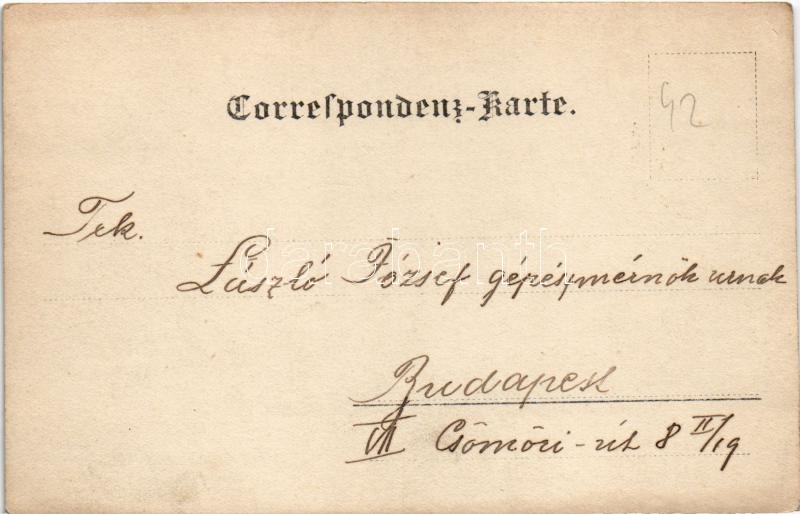 Correspondenz-Karte.
42
Tek.
László József gépészmérnök urnak
Budapest
VII Csömöri-út 8 II/19
darabanth